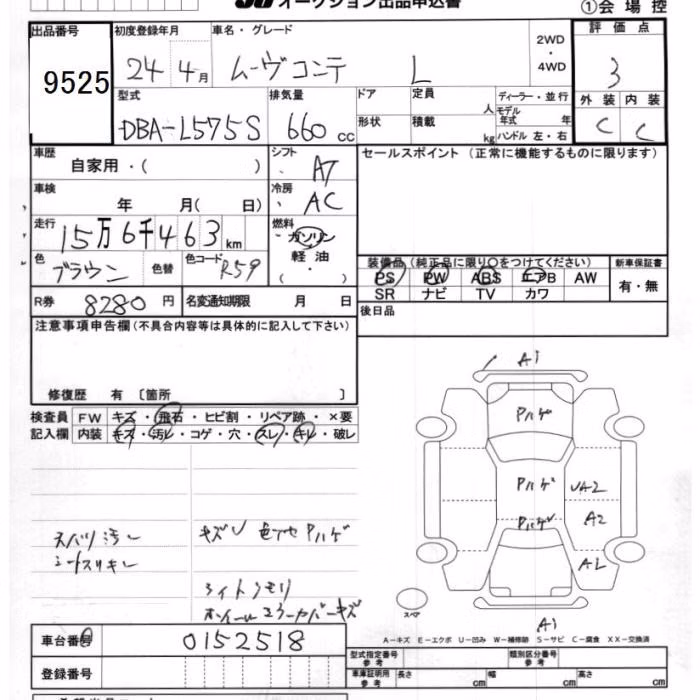 オークション出品申込書
①会場控
出品番号
9525
初度登録年月
24 4月
車名・グレード
ムーヴコンテ L
2WD
・
4WD
評価点
3
型式
DBA-L575S
排気量
660 cc
ドア
定員 人
形状
積載 kg
ディーラー・並行
モデル年式 年
ハンドル 左・右
外装 内装
C C
車歴
自家用・( )
シフト
AT
セールスポイント (正常に機能するものに限ります)
車検
年 月( 日)
冷房
AC
走行
15万6千463km
燃料
ガソリン
軽油
( ・ )
色
ブラウン
色替
色コード R59
装備品 (純正品に限り○をつけてください)
新車保証書
PS PW ABS エアB AW
SR ナビ TV カワ
有・無
R券 8280円
名変通知期限 月 日
後日品
注意事項申告欄(不具合内容等は具体的に記入して下さい)
修復歴 有 〔箇所 〕
検査員記入欄
FW キズ・飛石・ヒビ割・リペア跡・×要
内装 キズ・汚レ・コゲ・穴・スレ・キレ・破レ
A1
Pハゲ
Pハゲ
UA2
Pハゲ
A2
A2
スペア
A1
キズU 色アセ Pハゲ
ライトクモリ
車台番号
0152518
登録番号
A-キズ E-エクボ U-凹み W-補修跡 S-サビ C-腐食 XX-交換済
型式指定番号
参考
類別区分番号
参考
車庫証明用
参考
長さ cm 幅 cm 高さ cm